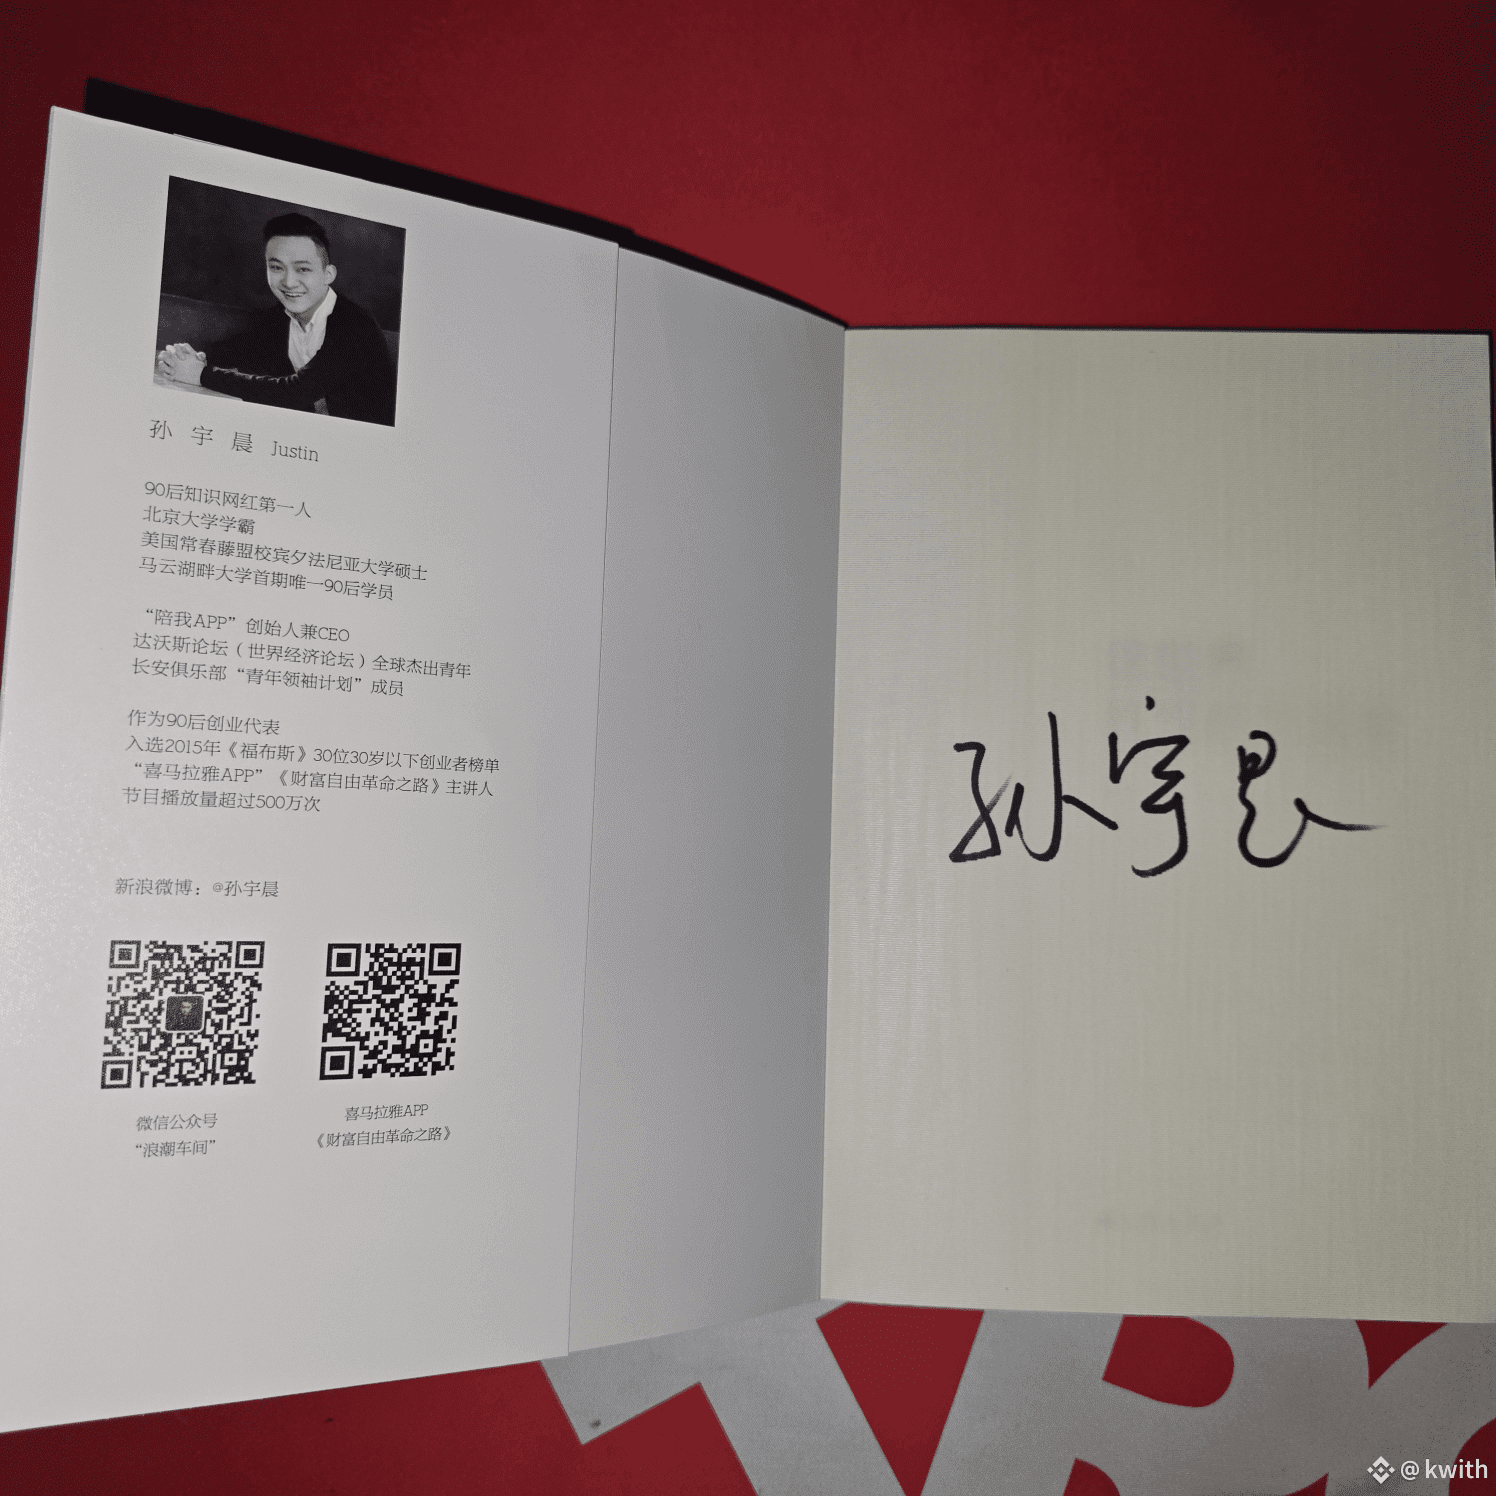 孙宇晨 Justin
90后知识网红第一人
北京大学学霸
美国常春藤盟校宾夕法尼亚大学硕士
马云湖畔大学首期唯一90后学员
“陪我APP”创始人兼CEO
达沃斯论坛（世界经济论坛）全球杰出青年
长安俱乐部“青年领袖计划”成员
作为90后创业代表
入选2015年《福布斯》30位30岁以下创业者榜单
“喜马拉雅APP”《财富自由革命之路》主讲人
节目播放量超过500万次
新浪微博：@孙宇晨
微信公众号
“浪潮车间”
喜马拉雅APP
《财富自由革命之路》
孙宇晨
@kwith